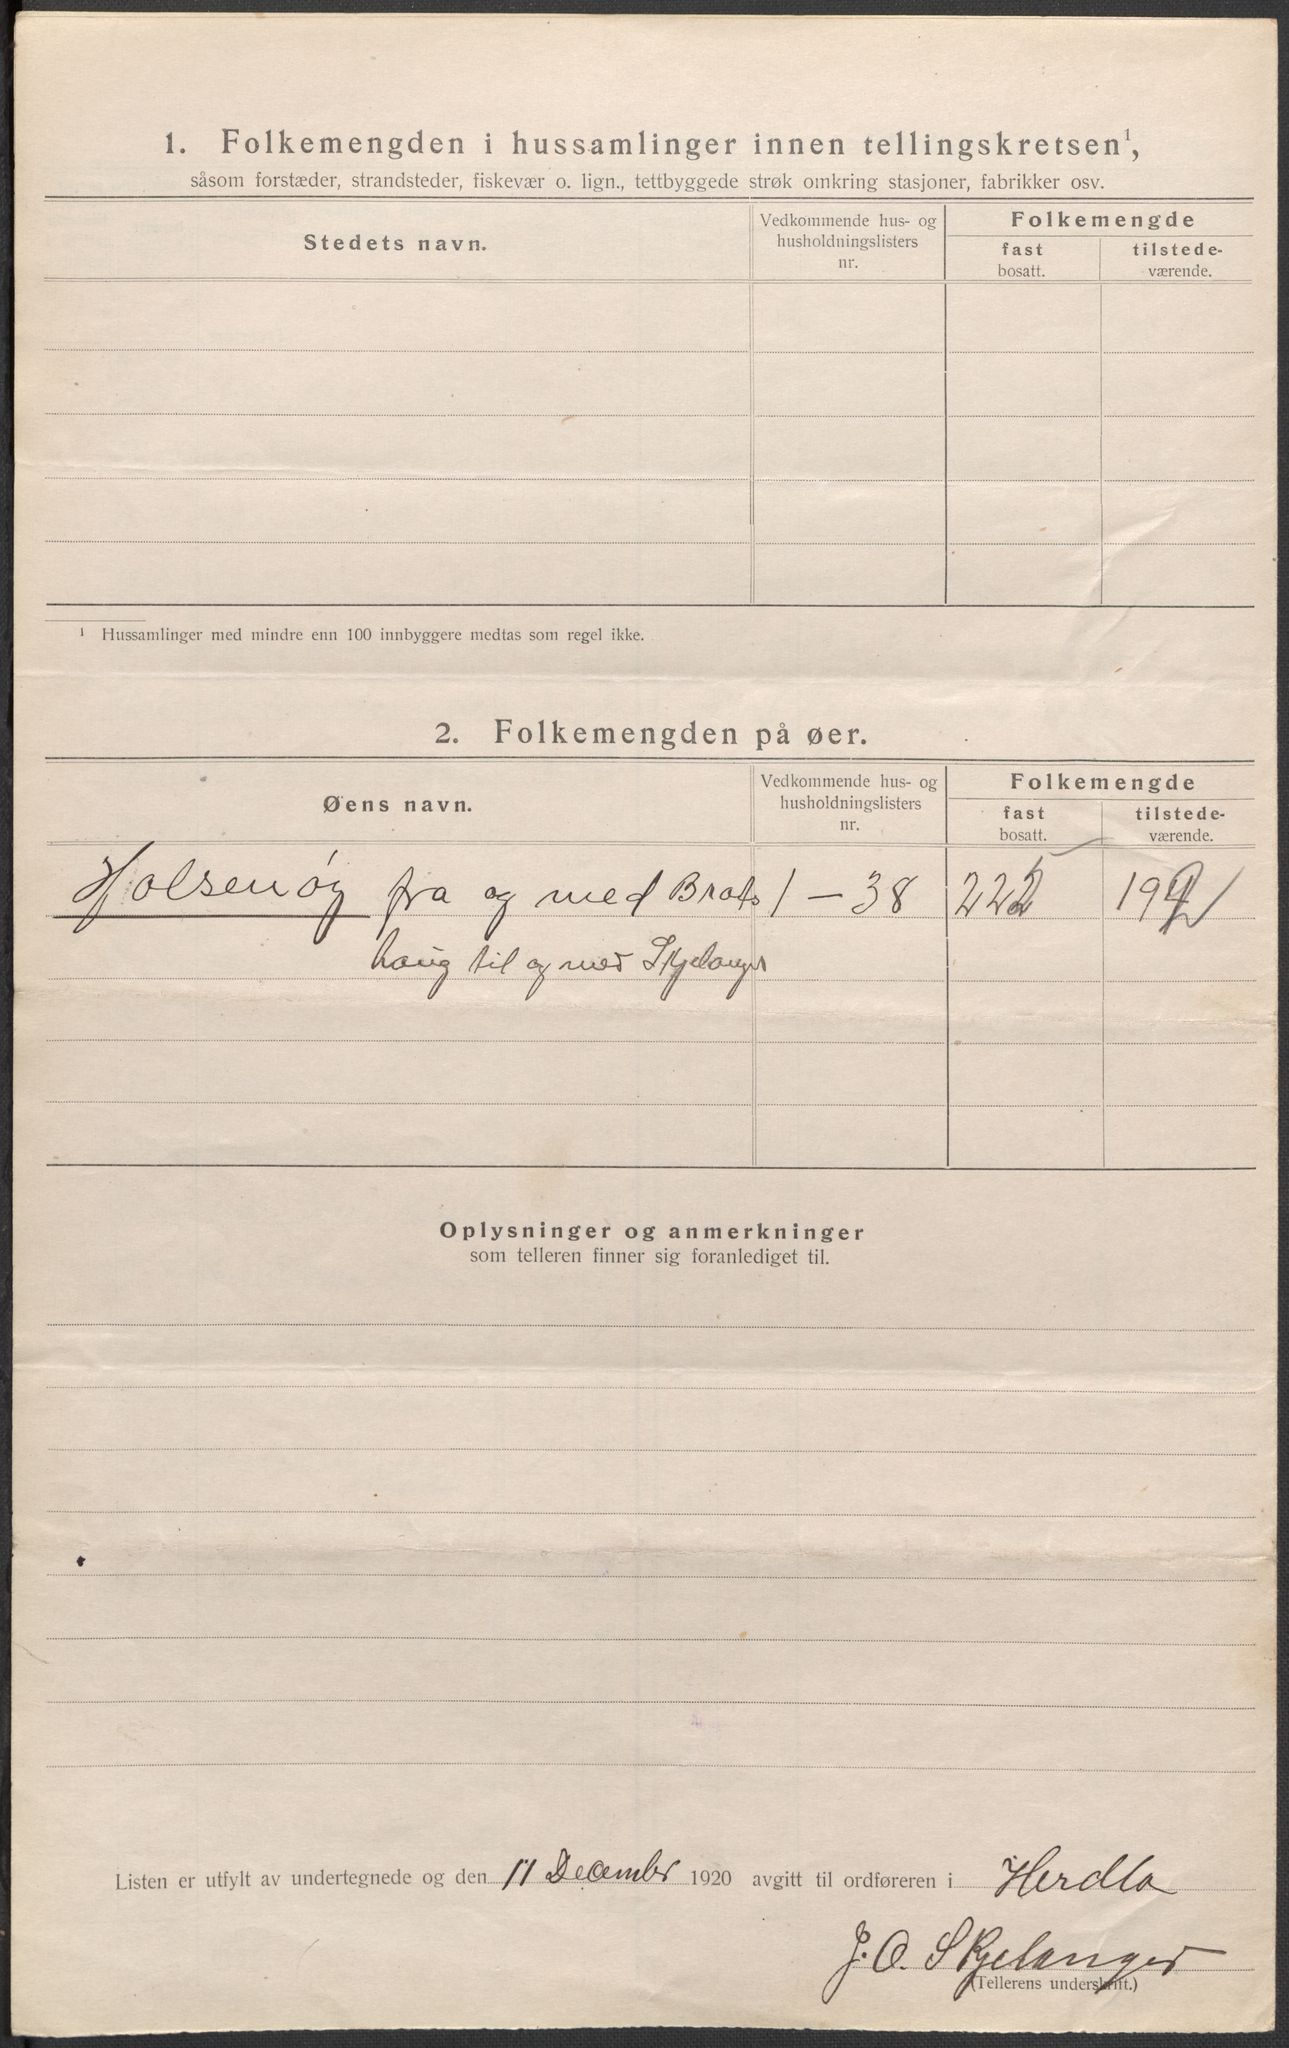 1. Folkemengden i hussamlinger innen tellingskretsen¹,
såsom forstæder, strandsteder, fiskevær o. lign., tettbyggede strøk omkring stasjoner, fabrikker osv.
Stedets navn.
Vedkommende hus- og
husholdningslisters
nr.
Folkemengde
fast
bosatt.
tilstede-
værende.
¹ Hussamlinger med mindre enn 100 innbyggere medtas som regel ikke.
2. Folkemengden på øer.
Øens navn.
Vedkommende hus- og
husholdningslisters
nr.
Folkemengde
fast
bosatt.
tilstede-
værende.
Holsenöy fra og med Brats 1 – 38 222 192
haug til og med Skjelanger
Oplysninger og anmerkninger
som telleren finner sig foranlediget til.
Listen er utfylt av undertegnede og den 11 December 1920 avgitt til ordføreren i Herdla
J. O. Skjelanger
(Tellerens underskrift.)